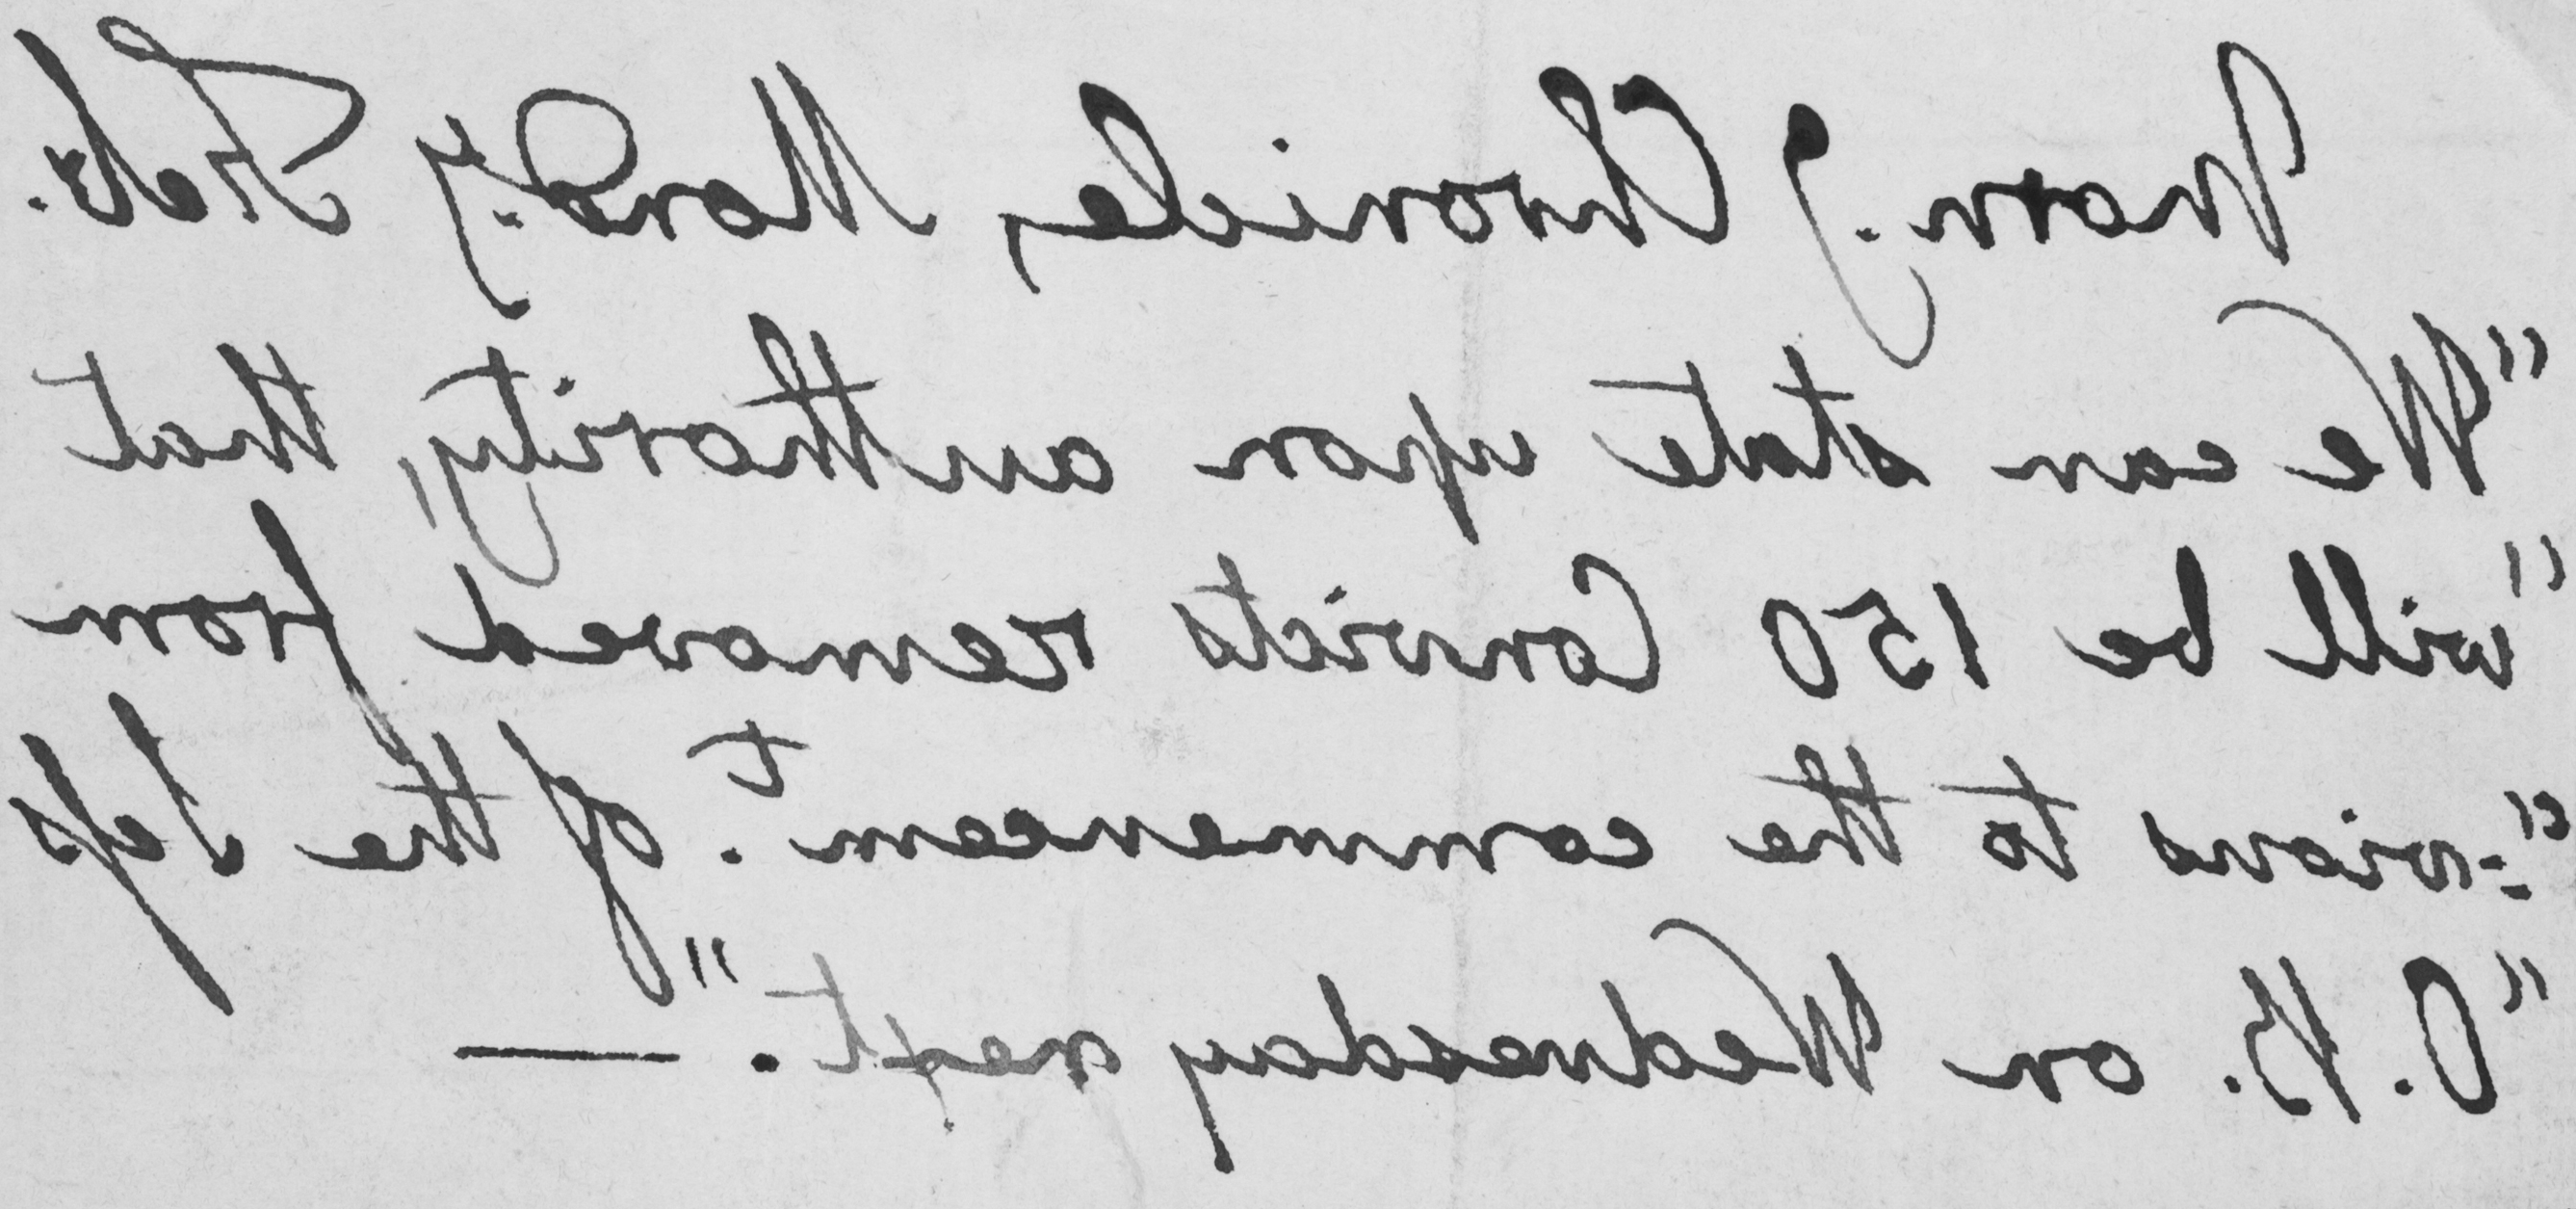 Morn.g Chronicle, Mond.y Feb.
"We can state upon authority, that
"will be 150 Convicts removed from
"=vious to the commencem.t of the Sess
"O.B. on Wednesday next." —